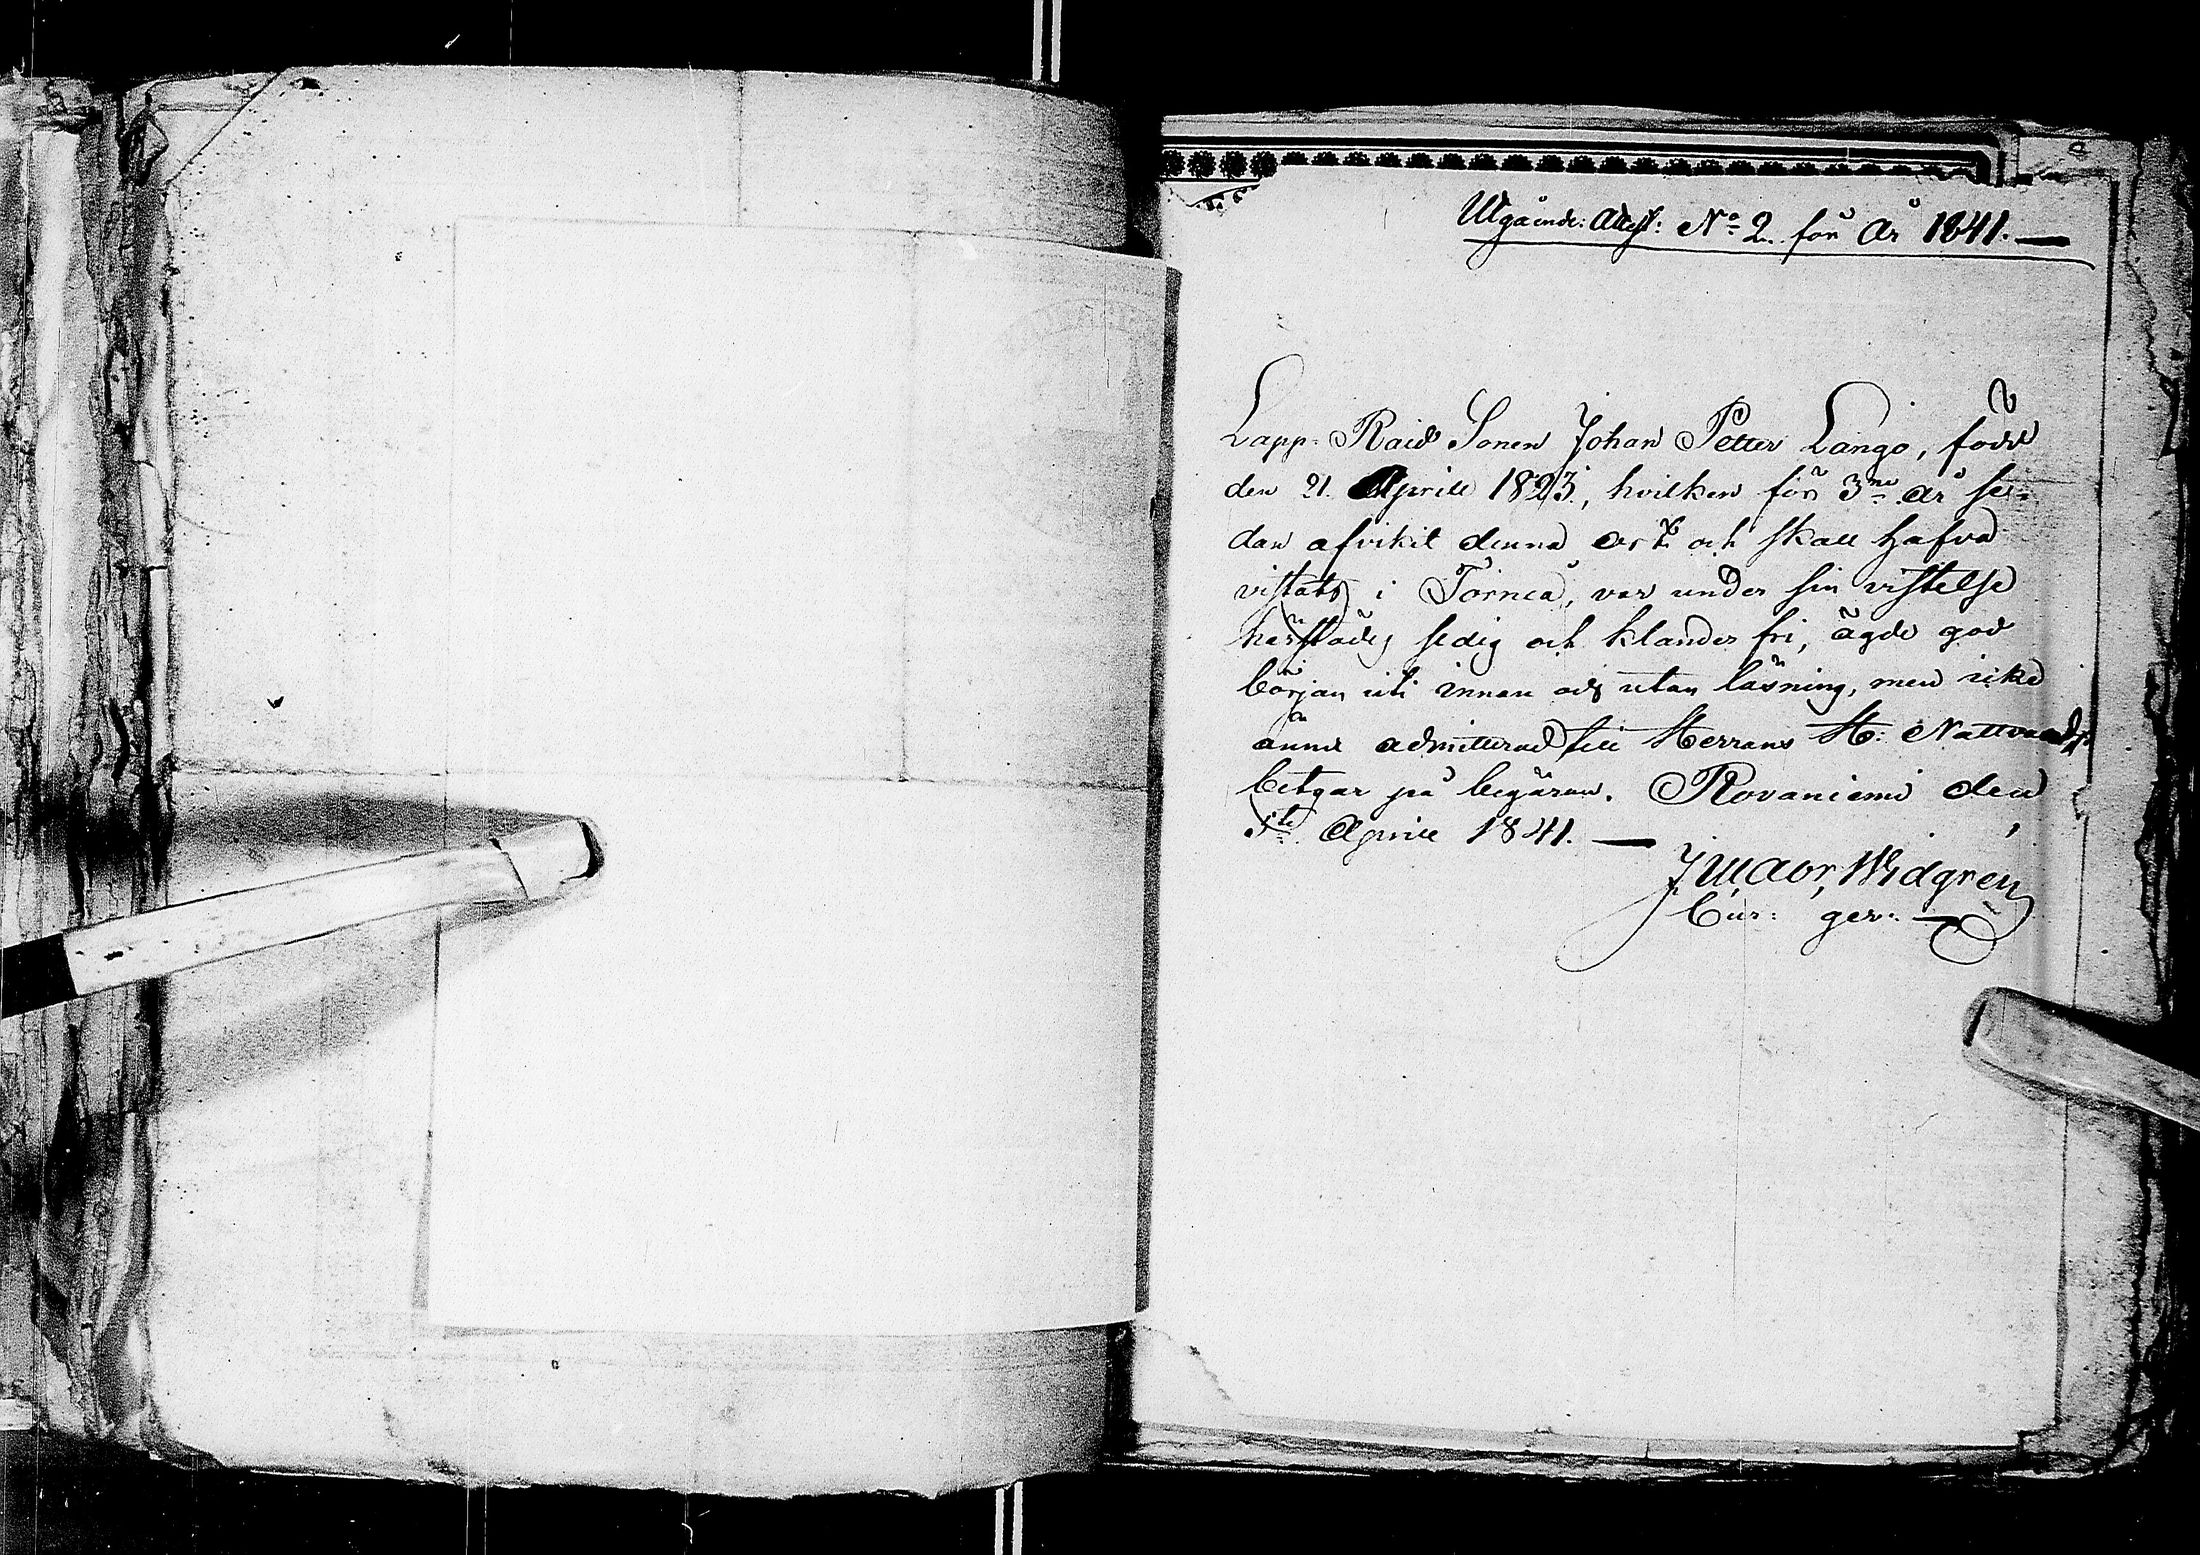 Utgående: Attest: No 2. för år 1841. —
Lapp-Raids Sonen Johan Petter Lango, född
den 21. Aprill 1823., hvilken för 3ne år se-
dan afvikit denna ort och skall hafva
vistats i Torneå, var under sin vistelse
härstädes sedig och klander fri, ägde god
början uti innan och utan läsning, men icke
ännu admitterad till Herrans H: Nattvard,
betygar på begäran. Rovaniemi den
1ste Aprill 1841. —
Widgren
Cur: ger: